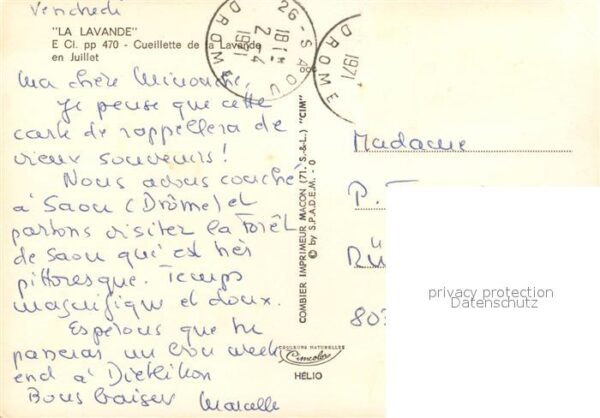 Vendredi
"LA LAVANDE"
E Ci. pp 470 - Cueillette de la Lavande
en Juillet
Ma chère Minouche,
Je pense que cette
carte de rappellera de
vieux souvenirs!
Nous avons couché
à Saou (Drôme) et
partons visiter la Forêt
de Saou qui est très
pittoresque. Temps
magnifique et doux.
Espérons que tu
passeras un bon week
end à Dietlikon
Bons baisers Marcelle
26-SAOU
18H
2-4
1971
DROME
1971
DROME
COMBIER IMPRIMEUR MACON (71. S.-&L.) "CIM"
© by S.P.A.D.E.M. - 0
COULEURS NATURELLES
Cimcolor
HÉLIO
Madame
P.
Rü
803
privacy protection
Datenschutz